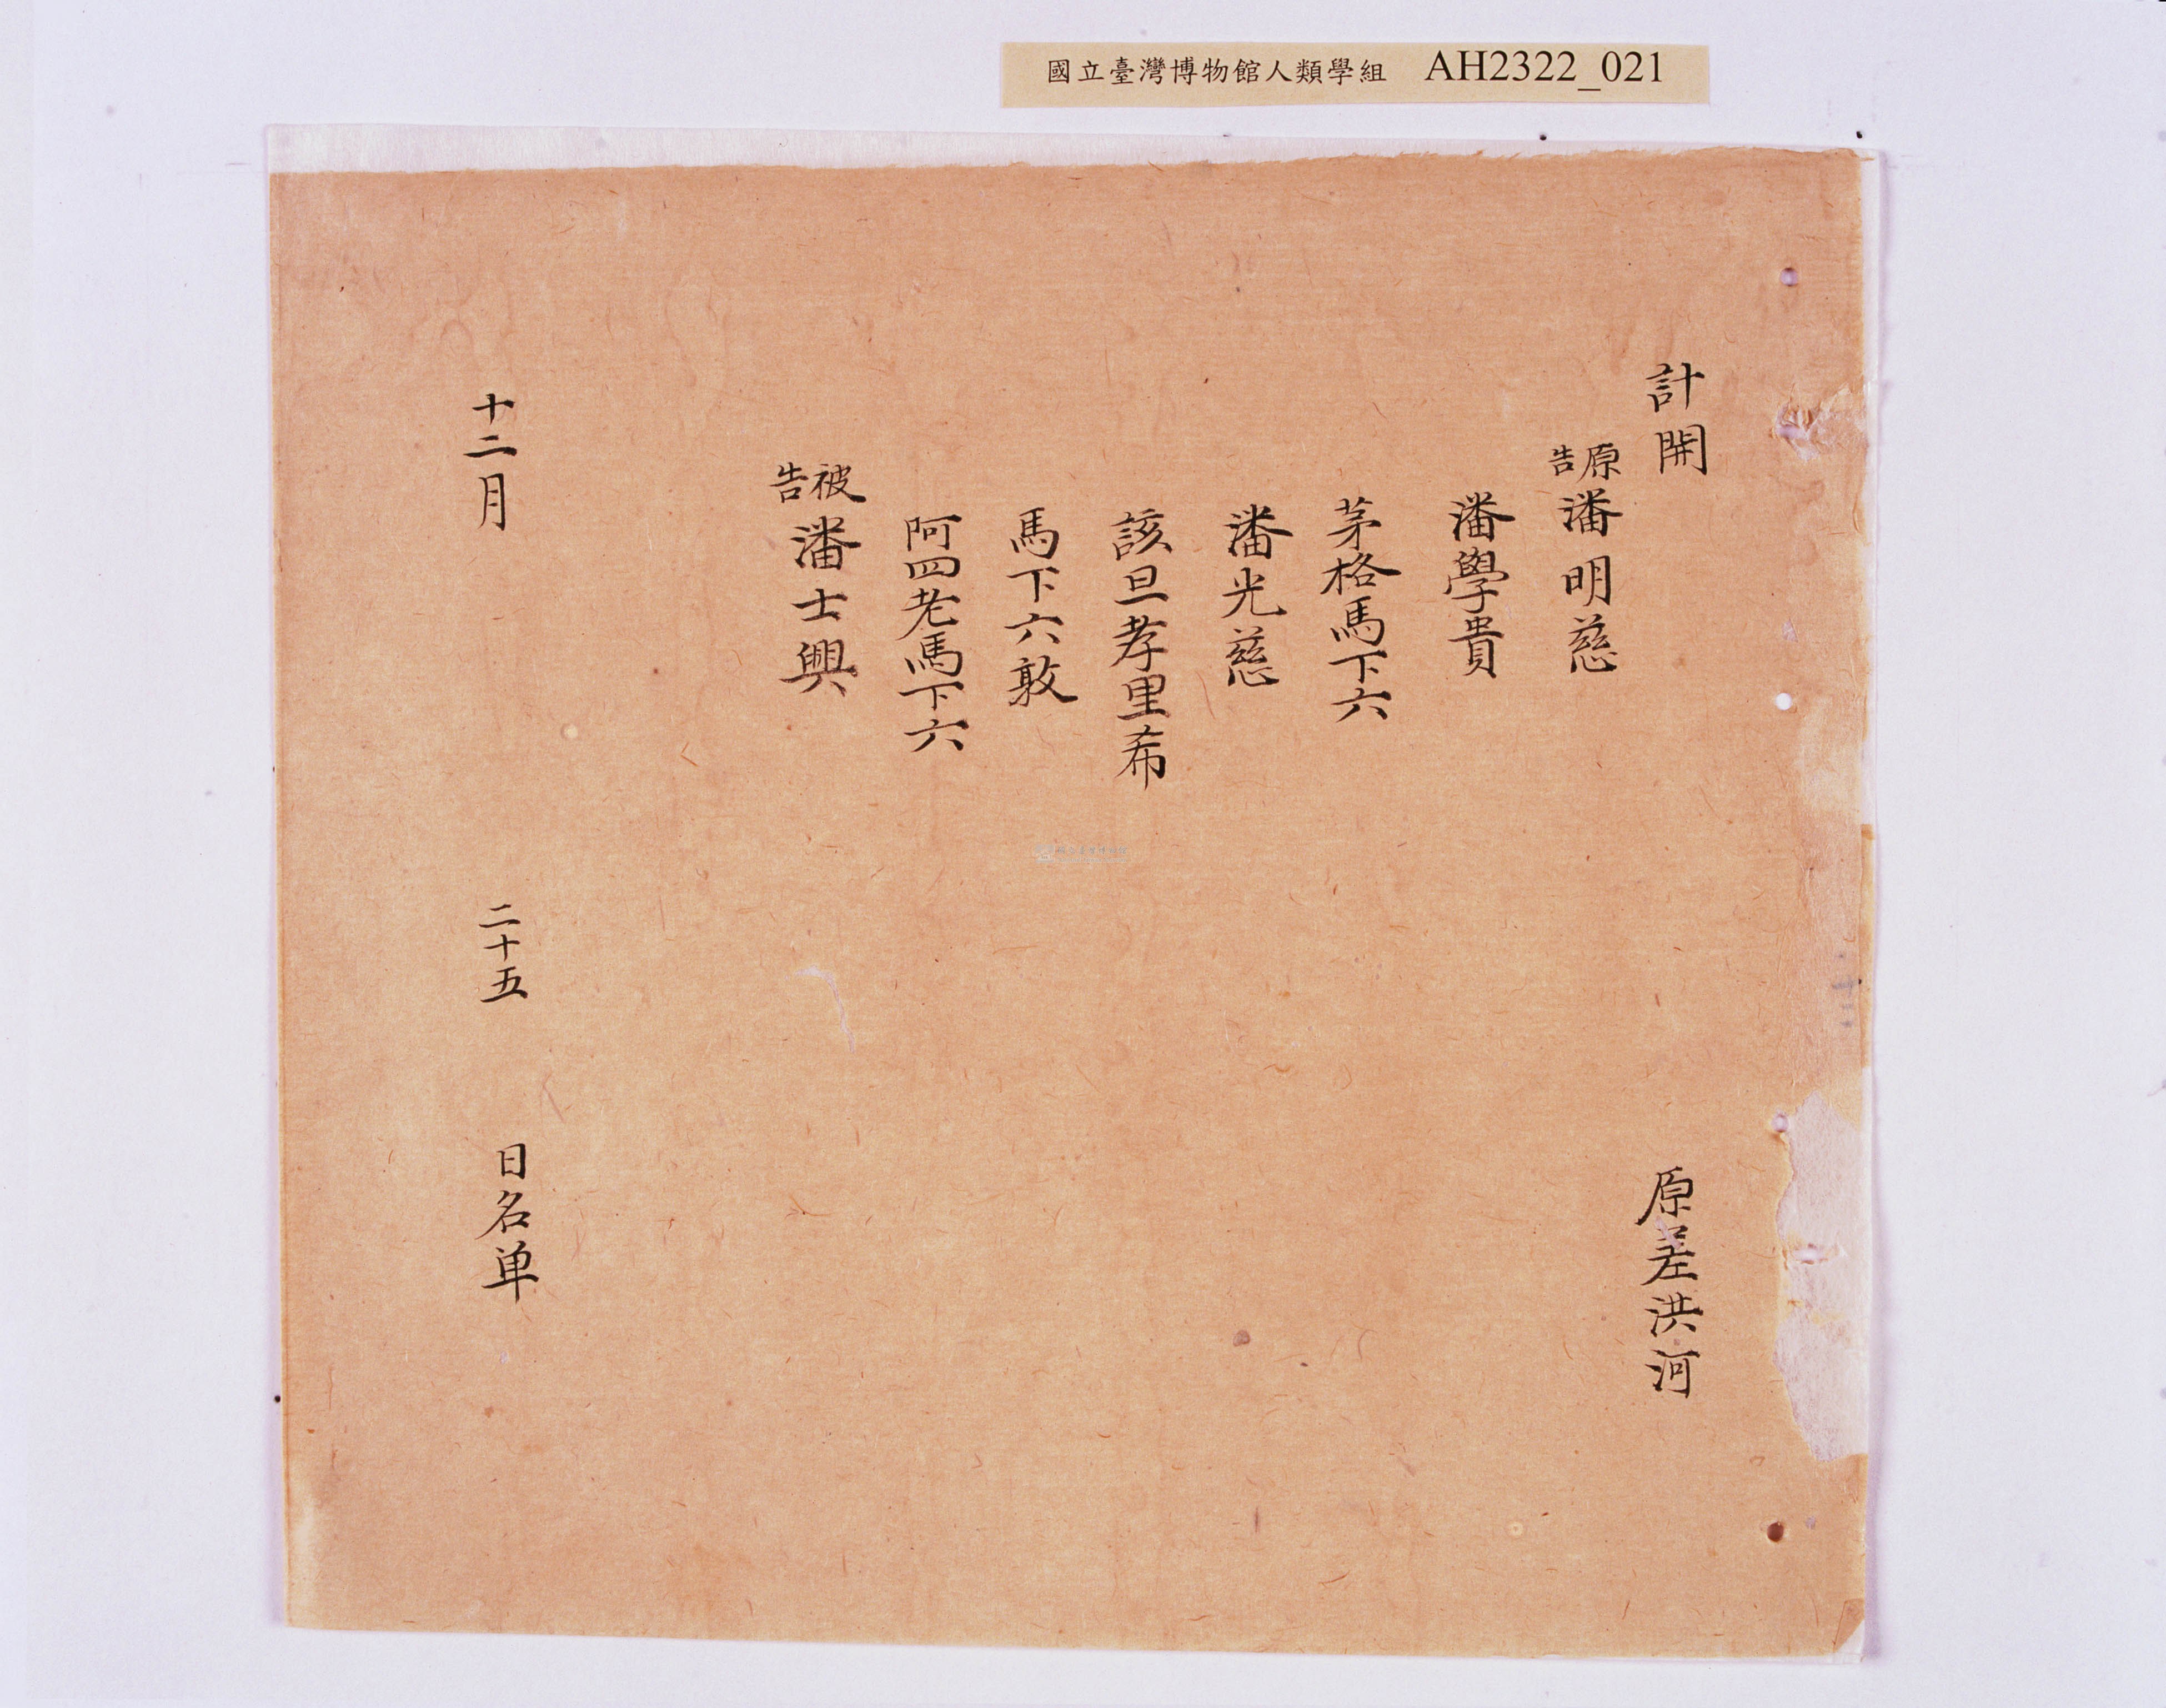 國立臺灣博物館人類學組 AH2322_021
計開
原差洪河
原告潘明慈
潘學貴
茅格馬下六
潘光慈
該旦孝里希
馬下六敦
阿四老馬下六
被告潘士興
十二月 二十五 日名单